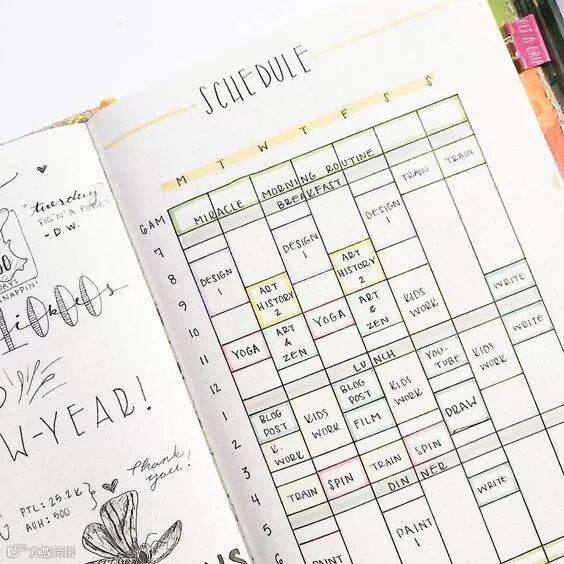 GET A GRIP
SCHEDULE
M T W T F S S
6AM
MIRACLE MORNING ROUTINE
BREAKFAST
TRAIN TRAIN
7
DESIGN 1 DESIGN 1
8
DESIGN 1 ART HISTORY 2 ART HISTORY 2
9
WRITE
10
YOGA ART & ZEN YOGA ART & ZEN KIDS WORK
11
WRITE
12
LUNCH
1
BLOG POST KIDS WORK BLOG POST KIDS WORK YOU-TUBE KIDS WORK
2
K. WORK FILM DRAW
3
TRAIN SPIN TRAIN SPIN
4
DINNER
WRITE
5
PAINT 1 PAINT 1
6
"tuesday
PIG 'N' A POKE"
- D.W.
NAPPIN'
W-YEAR!
Thank you!
PTL: 25.2K
AOH: 500
大数跨境